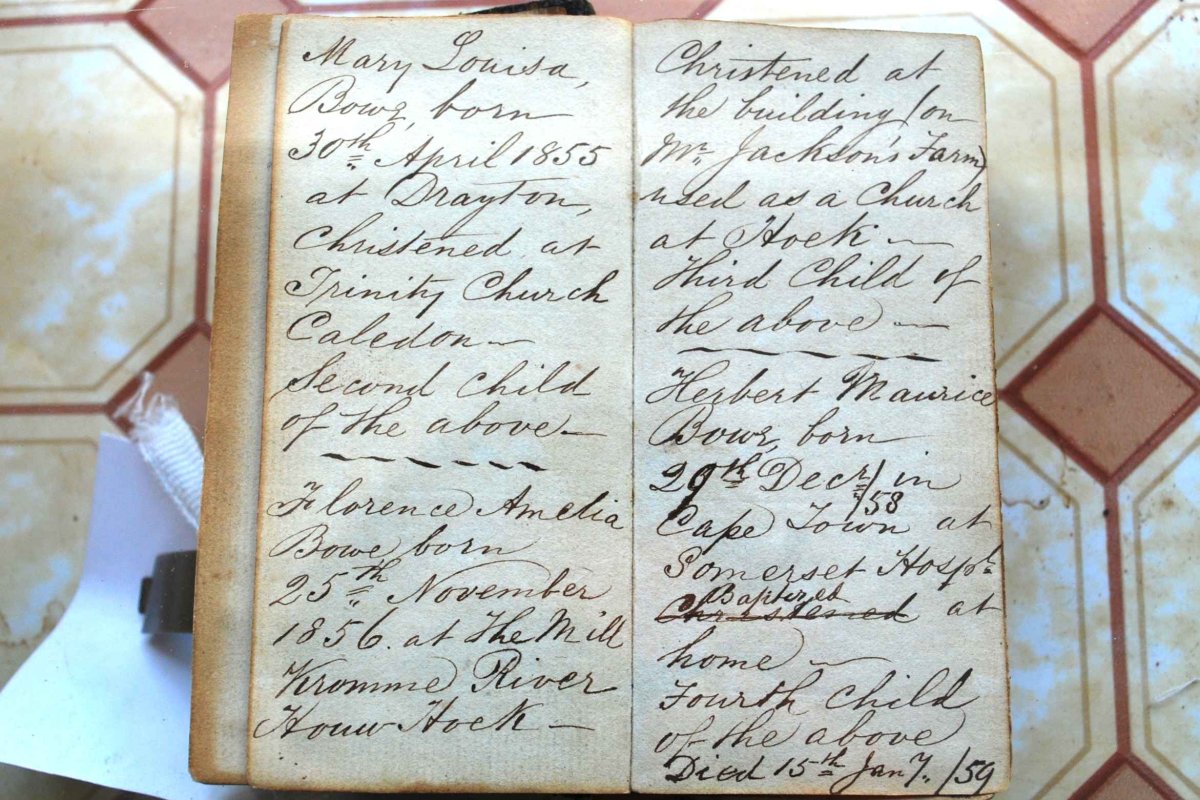 Mary Louisa,
Bowe, born
30th April 1855
at Drayton,
Christened at
Trinity Church
Caledon —
Second Child
of the above —
Florence Amelia
Bowe, born
25th November
1856. at The Mill
Kromme River
Houw Hoek —
Christened at
the building (on
Mr. Jackson's Farm)
used as a Church
at Hoek —
Third Child of
the above —
Herbert Maurice
Bowe, born
29th Decr/58 in
Cape Town at
Somerset Hospl.
Baptized
Christened at
home —
Fourth Child
of the above
Died 15th Jany. /59